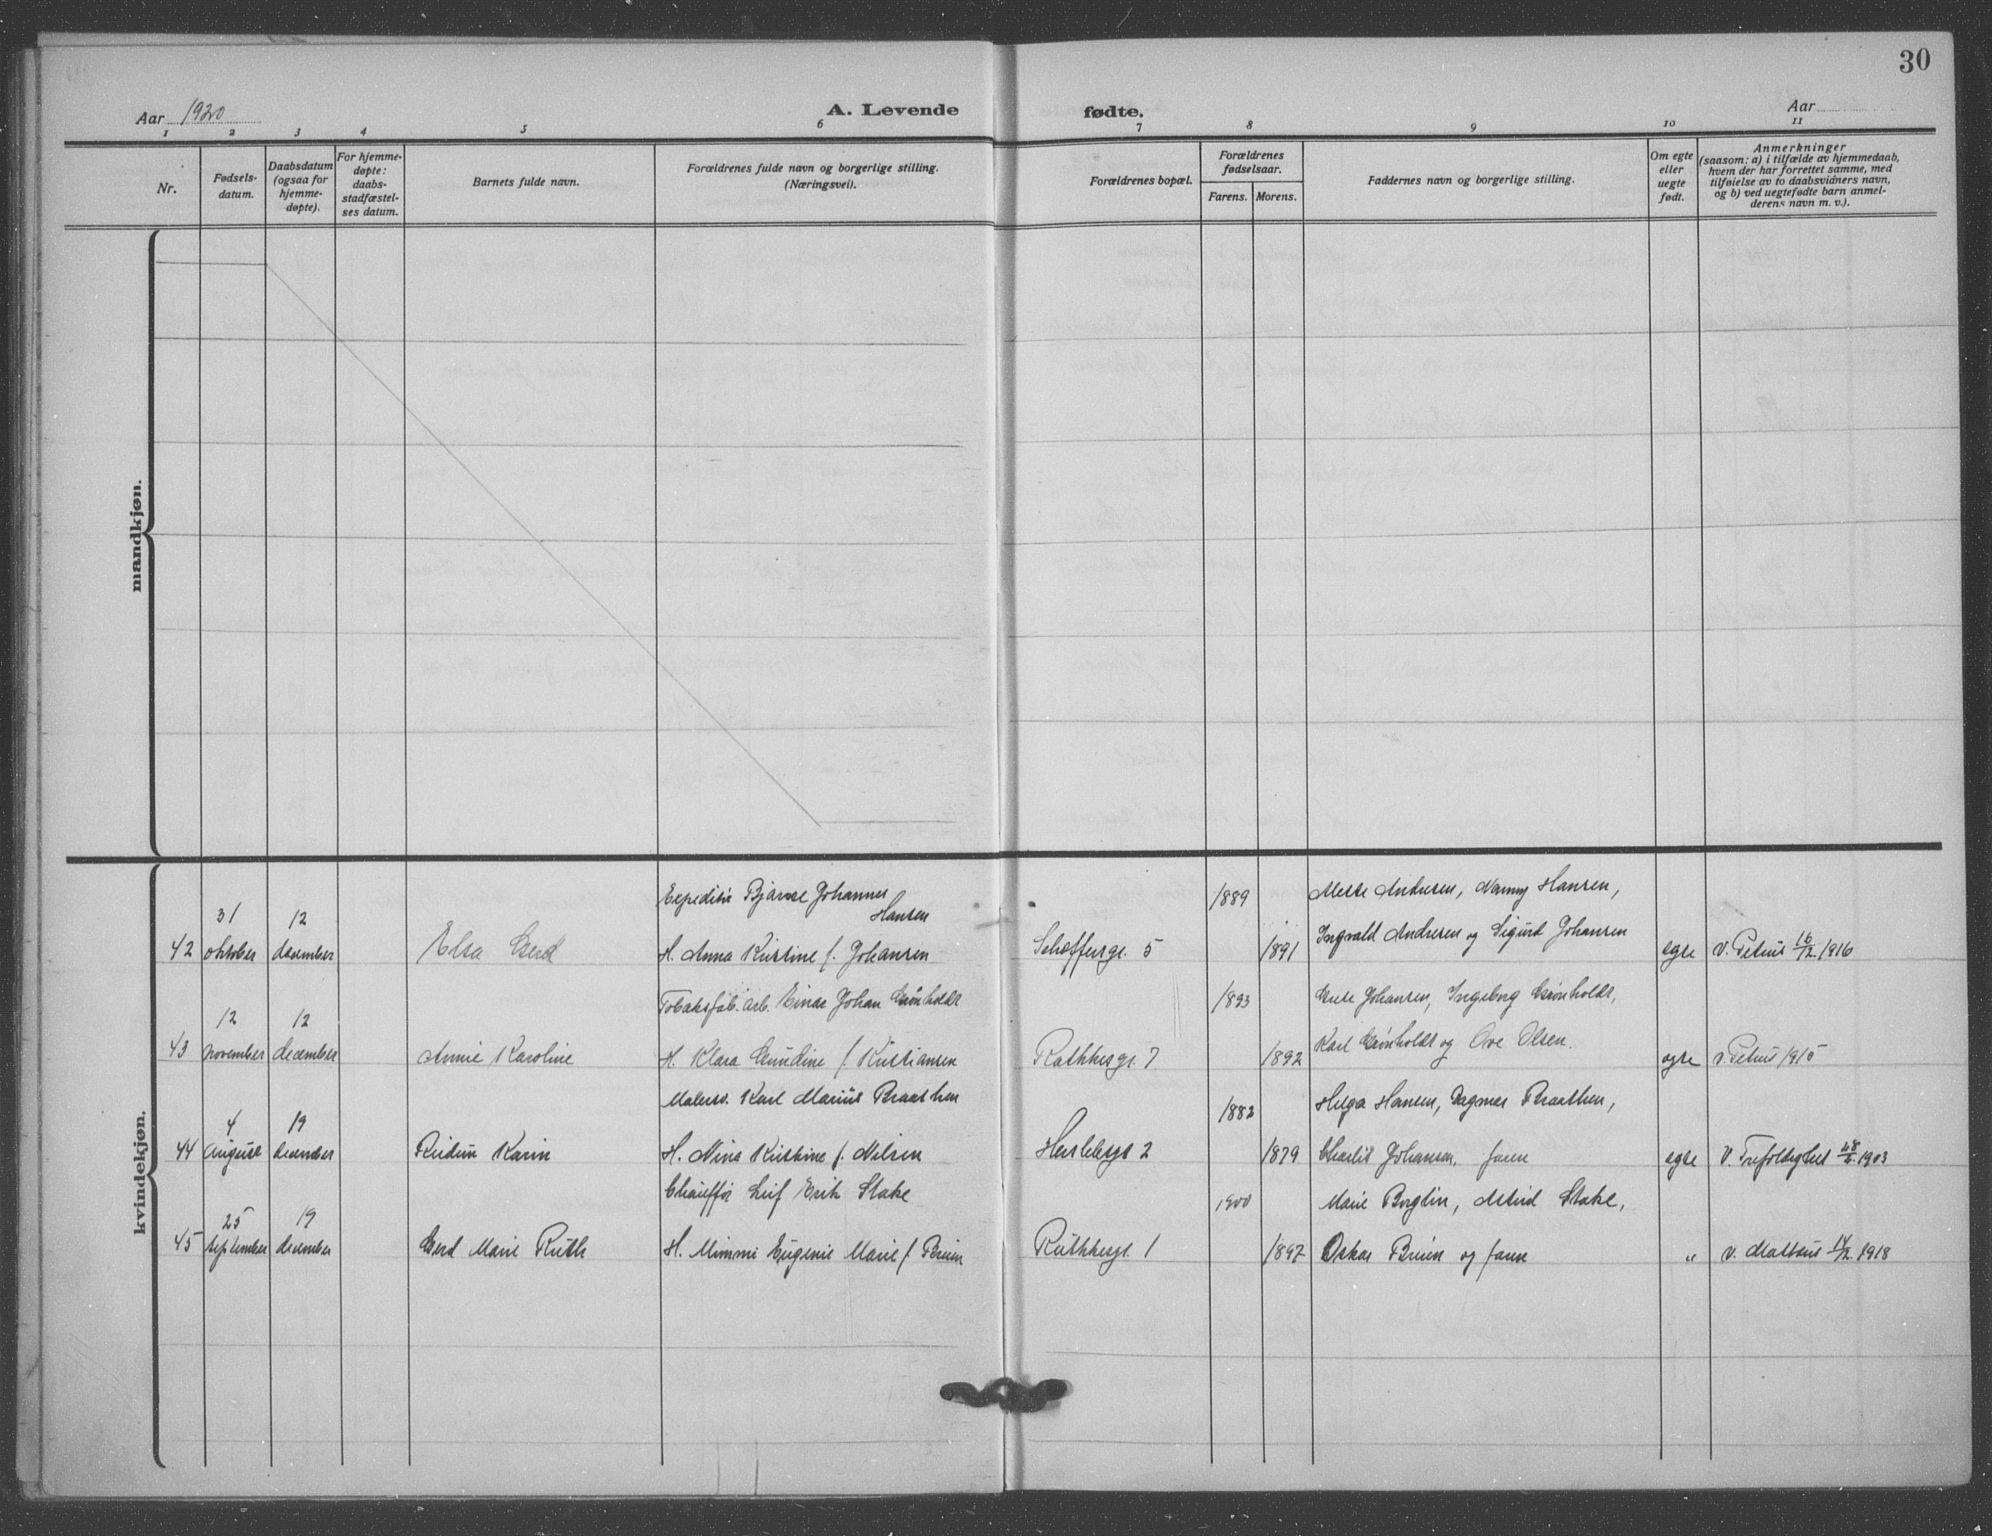 30
Aar 1920
A. Levende fødte.
Aar
1 2 3 4 5 6 7 8 9 10 11
Nr.
Fødsels-
datum.
Daabsdatum
(ogsaa for
hjemme-
døpte).
For hjemme-
døpte:
daabs-
stadfæstel-
ses datum.
Barnets fulde navn.
Forældrenes fulde navn og borgerlige stilling.
(Næringsvei).
Forældrenes bopæl.
Forældrenes
fødselsaar.
Farens. Morens.
Faddernes navn og borgerlige stilling.
Om egte
eller
uegte
født.
Anmerkninger
(saasom: a) i tilfælde av hjemmedaab,
hvem der har forrettet samme, med
tilføielse av to daabsvidners navn,
og b) ved uegtefødte barn anmel-
derens navn m. v.).
mandkjøn.
kvindekjøn.
Expeditør Bjarne Johannes 1889 Andresen, Nanny Hansen,
31 12 Hansen
42 oktober december Elsa Gerd H. Anna Kristine f. Johansen Schæffersgt. 5 1891 Ingvald Andresen og Sigurd Johansen egte v. Petrus 16/12. 1916
Tobaksfab. arb. Einar Johan Grønholdt 1893 Grete Johansen, Ingeborg Grønholdt,
12 12
43 november december Annie Karoline H. Klara Gundine f. Kristiansen Rathkesgt. 7 1892 Karl Grønholdt og Ove Olsen. egte v. Petrus 1915
Malersv. Karl Marius Braathen 1882 Helga Hansen, Dagmar Braathen,
4 19
44 august december Reidun Karin H. Nina Kristine f. Nilsen Herslebsgt 2 1879 Charlis Johansen, faren egte v. Trefoldighet 1903
Chauffør Leif Erik Stake 1900 Marie Borglin, Astrid Stake,
25 19
45 september december Gerd Marie Ruth H. Mimmi Eugenie Marie f. Bruun Rathkesgt. 1 1897 Oskar Bruun og faren " v. Matteus 1918